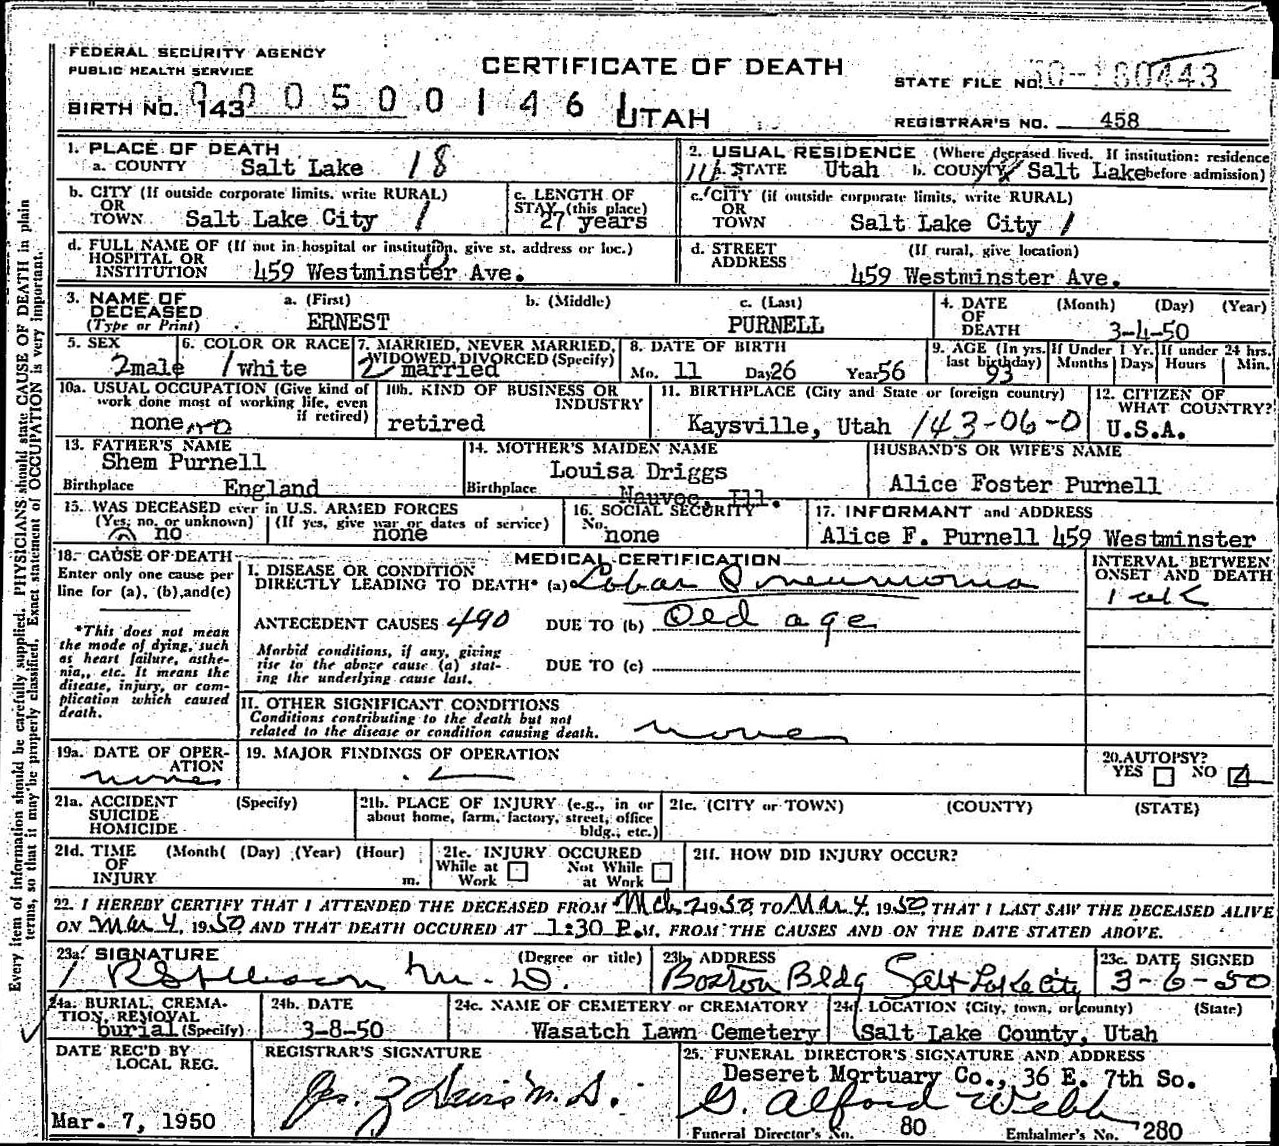 FEDERAL SECURITY AGENCY
PUBLIC HEALTH SERVICE
CERTIFICATE OF DEATH
STATE FILE NO.
BIRTH NO. 143 000500146
UTAH
REGISTRAR'S NO. 458
1. PLACE OF DEATH
a. COUNTY Salt Lake 18
2. USUAL RESIDENCE (Where deceased lived. If institution: residence before admission)
a. STATE Utah b. COUNTY Salt Lake
b. CITY (If outside corporate limits, write RURAL)
OR
TOWN Salt Lake City 1
c. LENGTH OF
STAY (this place)
27 years
c. CITY (if outside corporate limits, write RURAL)
OR
TOWN Salt Lake City 1
d. FULL NAME OF (If not in hospital or institution, give st. address or loc.)
HOSPITAL OR
INSTITUTION 459 Westminster Ave.
d. STREET (If rural, give location)
ADDRESS 459 Westminster Ave.
3. NAME OF a. (First) b. (Middle) c. (Last)
DECEASED
(Type or Print) ERNEST PURNELL
4. DATE (Month) (Day) (Year)
OF
DEATH 3-4-50
5. SEX
2 male
6. COLOR OR RACE
1 white
7. MARRIED, NEVER MARRIED,
WIDOWED, DIVORCED (Specify)
2 married
8. DATE OF BIRTH
Mo. 11 Day 26 Year 56
9. AGE (In yrs.
last birthday)
93
If Under 1 Yr.
Months Days
If under 24 hrs.
Hours Min.
10a. USUAL OCCUPATION (Give kind of
work done most of working life, even
if retired)
none
10b. KIND OF BUSINESS OR
INDUSTRY
retired
11. BIRTHPLACE (City and State or foreign country)
Kaysville, Utah 143-06-0
12. CITIZEN OF
WHAT COUNTRY?
U.S.A.
13. FATHER'S NAME
Shem Purnell
Birthplace England
14. MOTHER'S MAIDEN NAME
Louisa Driggs
Birthplace Nauvoo, Ill.
HUSBAND'S OR WIFE'S NAME
Alice Foster Purnell
15. WAS DECEASED ever in U.S. ARMED FORCES
(Yes, no, or unknown) (If yes, give war or dates of service)
no none
16. SOCIAL SECURITY
No.
none
17. INFORMANT and ADDRESS
Alice F. Purnell 459 Westminster
18. CAUSE OF DEATH
Enter only one cause per
line for (a), (b), and (c)
*This does not mean
the mode of dying, such
as heart failure, asthe-
nia,, etc. It means the
disease, injury, or com-
plication which caused
death.
MEDICAL CERTIFICATION
I. DISEASE OR CONDITION
DIRECTLY LEADING TO DEATH* (a) Lobar Pneumonia
ANTECEDENT CAUSES 490 DUE TO (b) Old age
Morbid conditions, if any, giving
rise to the above cause (a) stat-
ing the underlying cause last.
DUE TO (c)
INTERVAL BETWEEN
ONSET AND DEATH
1 wk
II. OTHER SIGNIFICANT CONDITIONS
Conditions contributing to the death but not
related to the disease or condition causing death. none
19a. DATE OF OPER-
ATION
none
19. MAJOR FINDINGS OF OPERATION
20. AUTOPSY?
YES NO
21a. ACCIDENT (Specify)
SUICIDE
HOMICIDE
21b. PLACE OF INJURY (e.g., in or
about home, farm, factory, street, office
bldg., etc.)
21c. (CITY or TOWN) (COUNTY) (STATE)
21d. TIME (Month( (Day) (Year) (Hour)
OF
INJURY m.
21e. INJURY OCCURED
While at Not While
Work at Work
21f. HOW DID INJURY OCCUR?
22. I HEREBY CERTIFY THAT I ATTENDED THE DECEASED FROM Mch 2 1950, TO Mar 4, 1950, THAT I LAST SAW THE DECEASED ALIVE
ON Mar 4, 1950 AND THAT DEATH OCCURED AT 1:30 P.M, FROM THE CAUSES AND ON THE DATE STATED ABOVE.
23a. SIGNATURE (Degree or title)
M. D.
23b. ADDRESS
Boston Bldg Salt Lake City
23c. DATE SIGNED
3-6-50
24a. BURIAL, CREMA-
TION, REMOVAL
burial (Specify)
24b. DATE
3-8-50
24c. NAME OF CEMETERY OR CREMATORY
Wasatch Lawn Cemetery
24d. LOCATION (City, town, or county) (State)
Salt Lake County, Utah
DATE REC'D BY
LOCAL REG.
Mar. 7, 1950
REGISTRAR'S SIGNATURE
M. D.
25. FUNERAL DIRECTOR'S SIGNATURE AND ADDRESS
Deseret Mortuary Co., 36 E. 7th So.
G. Alford Webb
Funeral Director's No. 80 Embalmer's No. 280
Every item of information should be carefully supplied. PHYSICIANS should state CAUSE OF DEATH in plain
terms, so that it may be properly classified. Exact statement of OCCUPATION is very important.